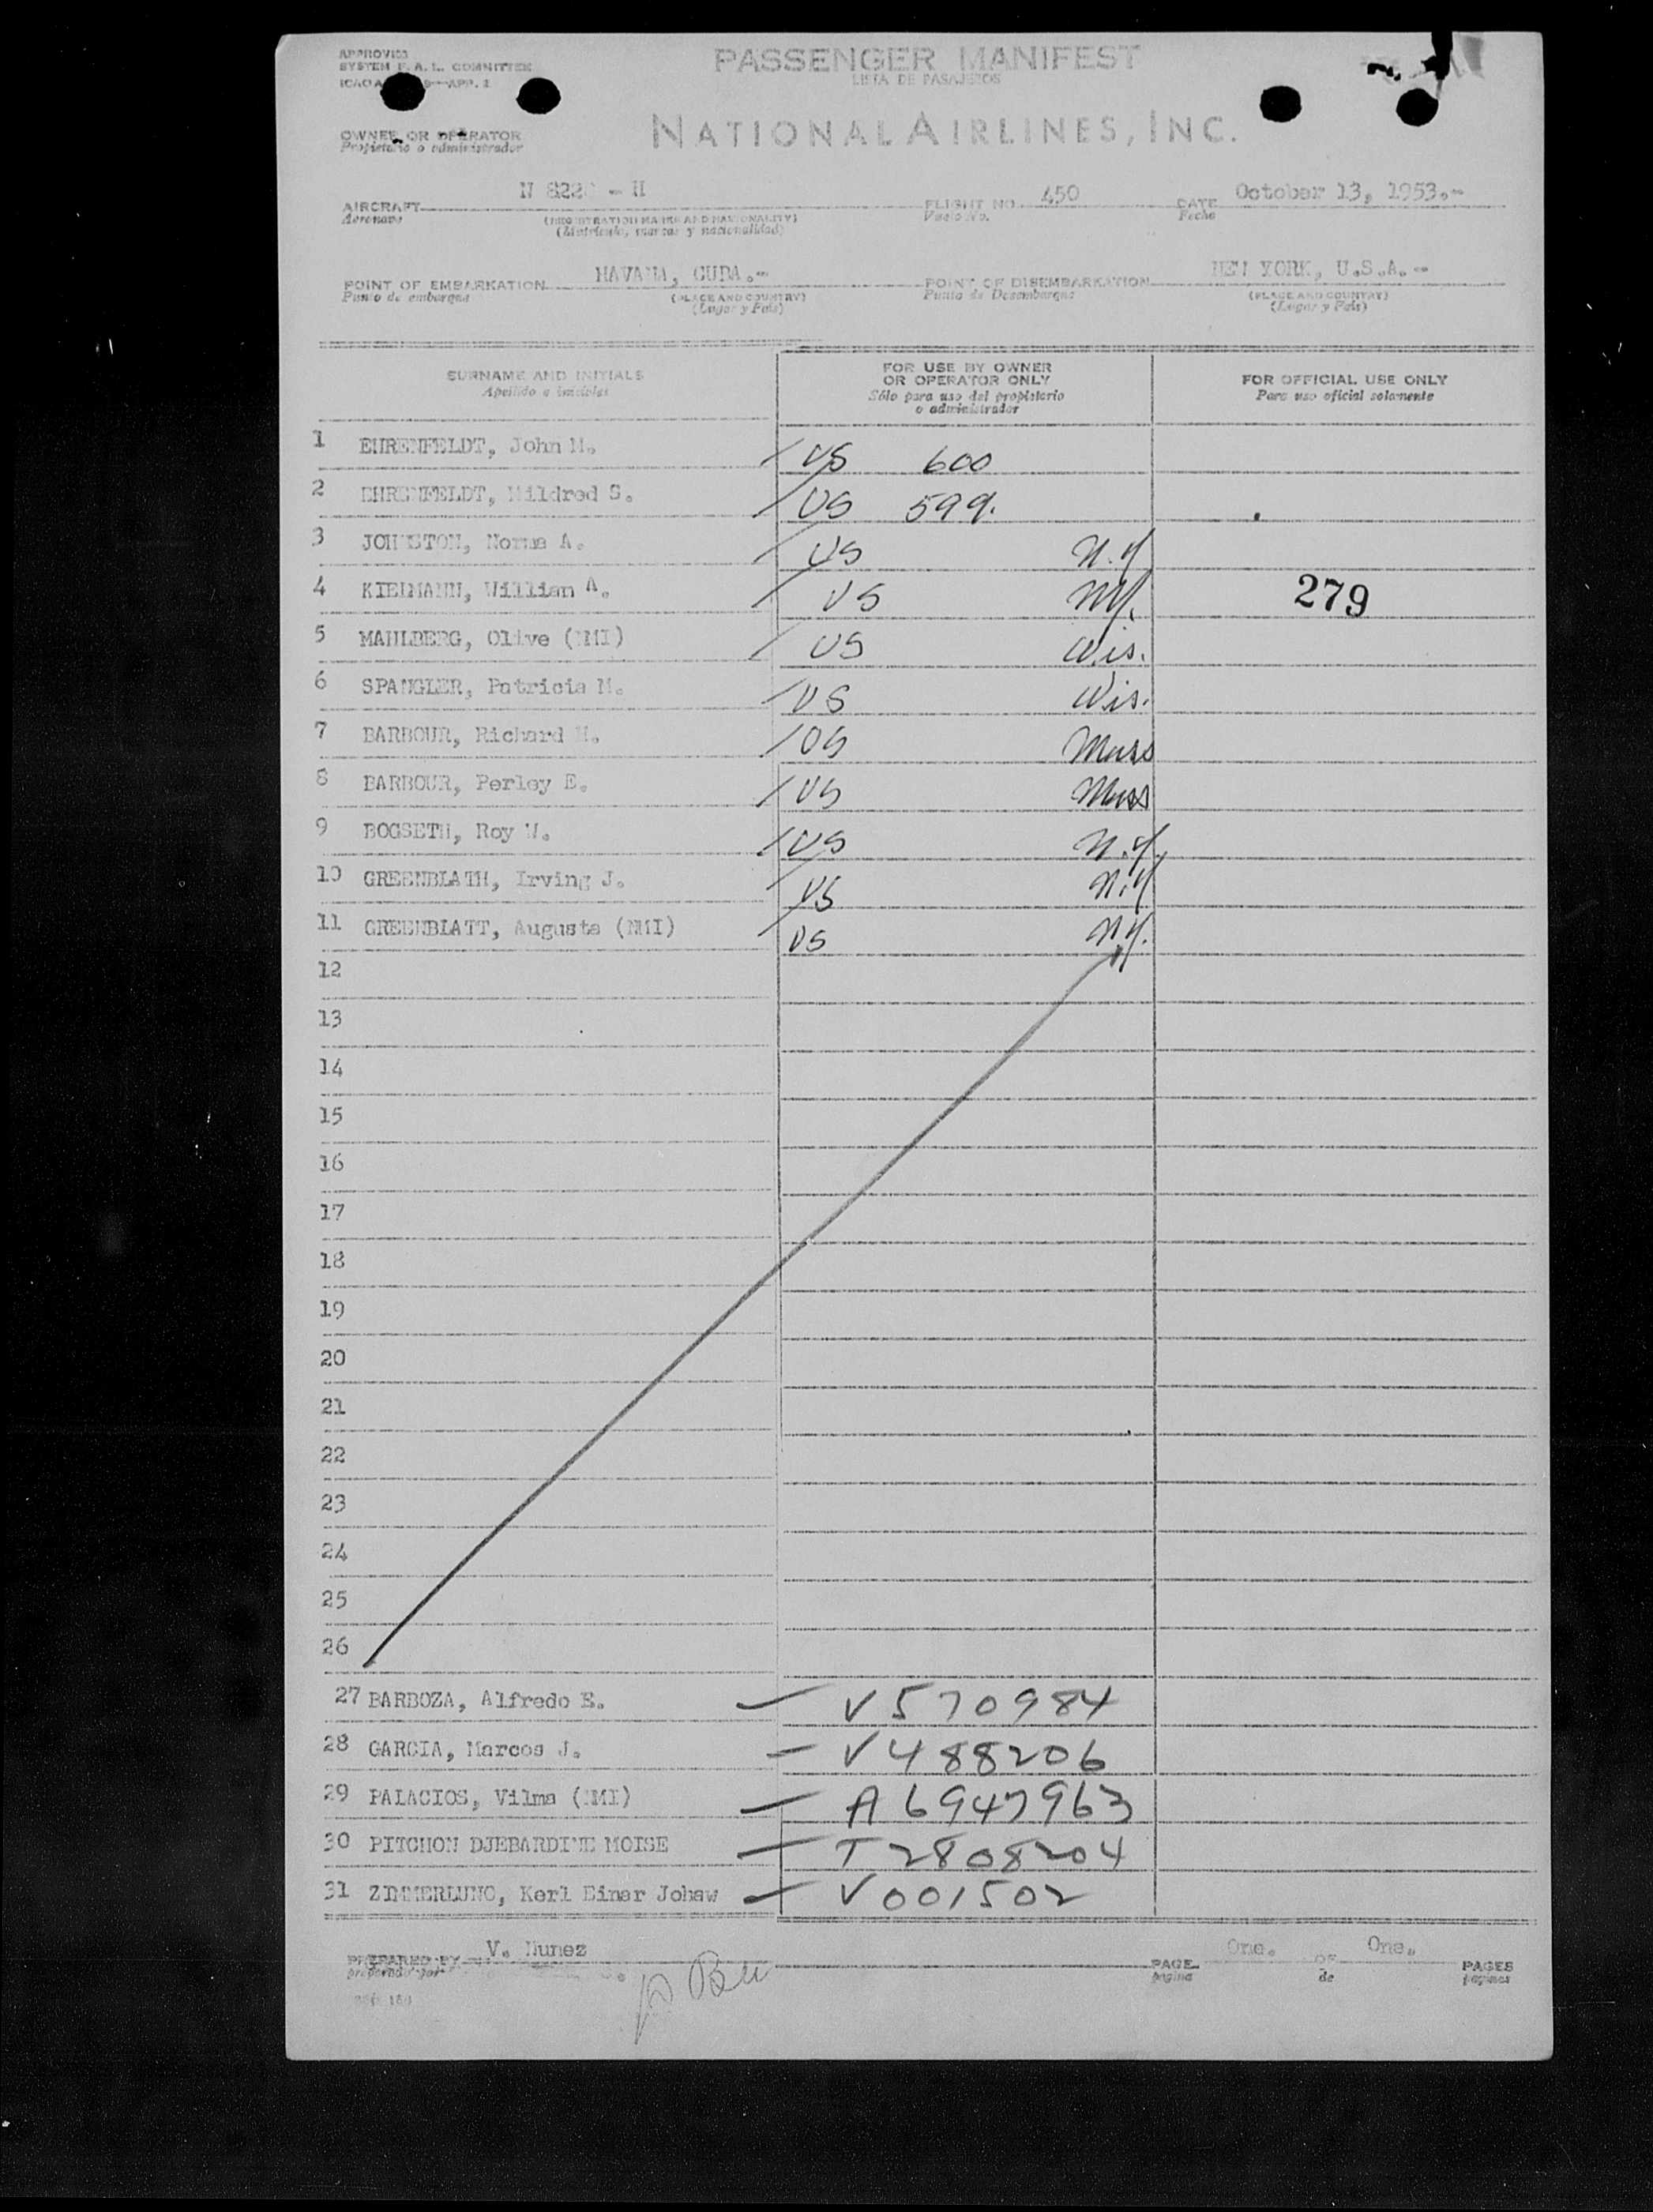 APPROVED
SYSTEM F. A. L. COMMITTEE
ICAO APP. 2
PASSENGER MANIFEST
LISTA DE PASAJEROS
OWNER OR OPERATOR
Propietario o administrador
NATIONAL AIRLINES, INC.
AIRCRAFT N 822 - H
Aeronave
(REGISTRATION MARKS AND NATIONALITY)
(Matricula, marcas y nacionalidad)
FLIGHT NO. 450
Vuelo No.
DATE October 13, 1953.-
Fecha
POINT OF EMBARKATION HAVANA, CUBA.-
Punto de embarque
(PLACE AND COUNTRY)
(Lugar y País)
POINT OF DISEMBARKATION NEW YORK, U.S.A.--
Punto de Desembarque
(PLACE AND COUNTRY)
(Lugar y País)
SURNAME AND INITIALS
Apellido e iniciales
FOR USE BY OWNER
OR OPERATOR ONLY
Sólo para uso del propietario
o administrador
FOR OFFICIAL USE ONLY
Para uso oficial solamente
1 EHRENFELDT, John M. / US 600
2 EHRENFELDT, Mildred S. / US 599.
3 JOHNSTON, Norma A. / US N.Y
4 KIELMANN, William A. / US NY. 279
5 MAHLBERG, Olive (NMI) / US Wis.
6 SPANGLER, Patricia M. / US Wis.
7 BARBOUR, Richard H. / US Mass
8 BARBOUR, Perley E. / US Mass
9 BOGSETH, Roy W. / US N.Y.
10 GREENBLATH, Irving J. / US N.Y
11 GREENBLATT, Augusta (NMI) / US N.Y.
12
13
14
15
16
17
18
19
20
21
22
23
24
25
26
27 BARBOZA, Alfredo E. — V570984
28 GARCIA, Marcos J. — V488206
29 PALACIOS, Vilma (NMI) — A6947963
30 PITCHON DJEBARDINE MOISE — T2808204
31 ZIMMERLUNG, Karl Einar Johaw — V001502
PREPARED BY V. Nunez
preparado por
PAGE One. OF One. PAGES
pagina de paginas